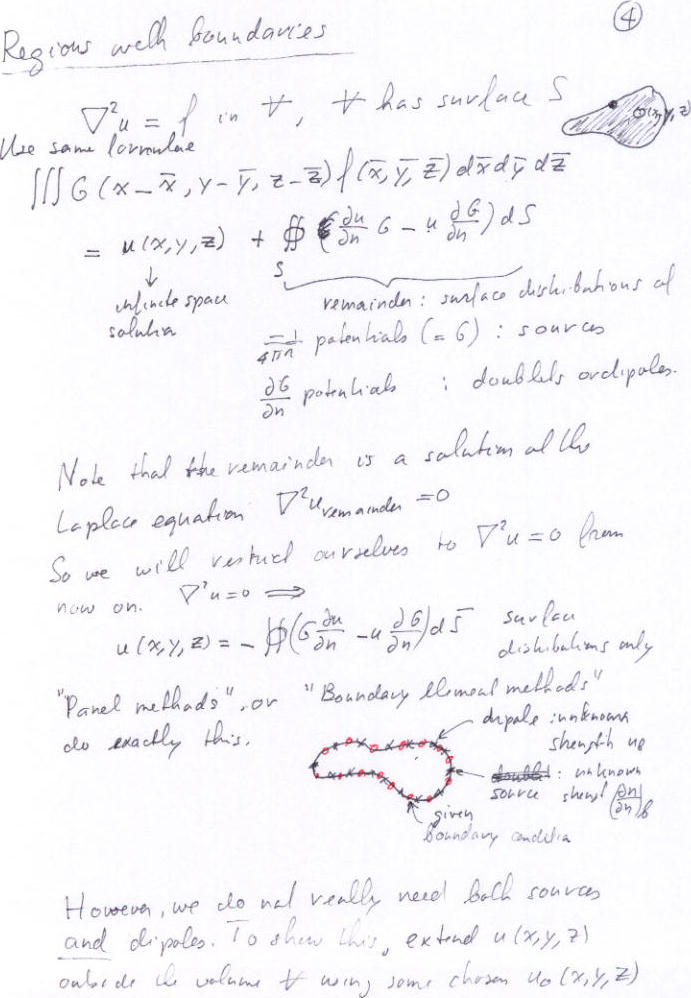 ④
Regions with boundaries
∇²u = f in V, V has surface S
(x, y, z)
Use same formulae
∭ G (x - x̄, y - ȳ, z - z̄) f (x̄, ȳ, z̄) dx̄ dȳ dz̄
= u (x, y, z) + ∯ ( ∂u/∂n G - u ∂G/∂n ) dS
S
↓
infinite space
solution
remainder: surface distributions of
-1/4πr potentials (= G) : sources
∂G/∂n potentials : doublets or dipoles.
Note that the remainder is a solution of the
Laplace equation ∇²u remainder = 0
So we will restrict ourselves to ∇²u = 0 from
now on. ∇²u = 0 ⟹
u (x, y, z) = - ∯ (G ∂u/∂n - u ∂G/∂n) dS̄ surface
distributions only
"Panel methods", or "Boundary element methods"
do exactly this.
dipole : unknown
strength u_B
source : unknown
strengt (∂u/∂n)_B
given
boundary condition
However, we do not really need both sources
and dipoles. To show this, extend u (x, y, z)
outside the volume V using some chosen u₀ (x, y, z)